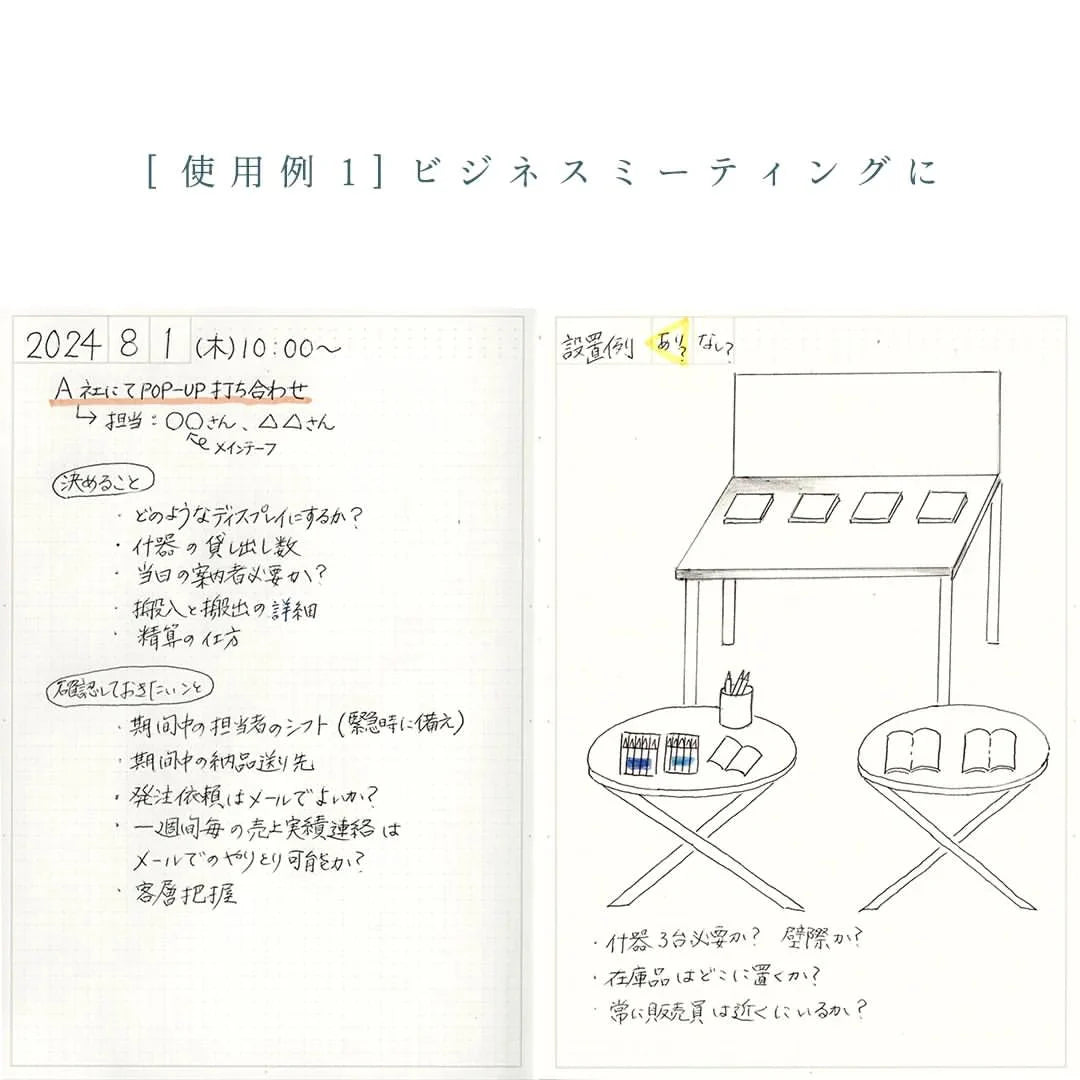 [使用例1] ビジネスミーティングに
2024 8 1 (木) 10:00〜
A社にてPOP-UP打ち合わせ
担当:○○さん、△△さん
メインテーフ
決めること
・どのようなディスプレイにするか?
・什器の貸し出し数
・当日の案内者必要か?
・搬入と搬出の詳細
・精算の仕方
確認しておきたいこと
・期間中の担当者のシフト(緊急時に備え)
・期間中の納品送り先
・発注依頼はメールでよいか?
・一週間毎の売上実績連絡は
メールでのやりとり可能か?
・客層把握
設置例 あり? なし?
・什器3台必要か? 壁際か?
・在庫品はどこに置くか?
・常に販売員は近くにいるか?